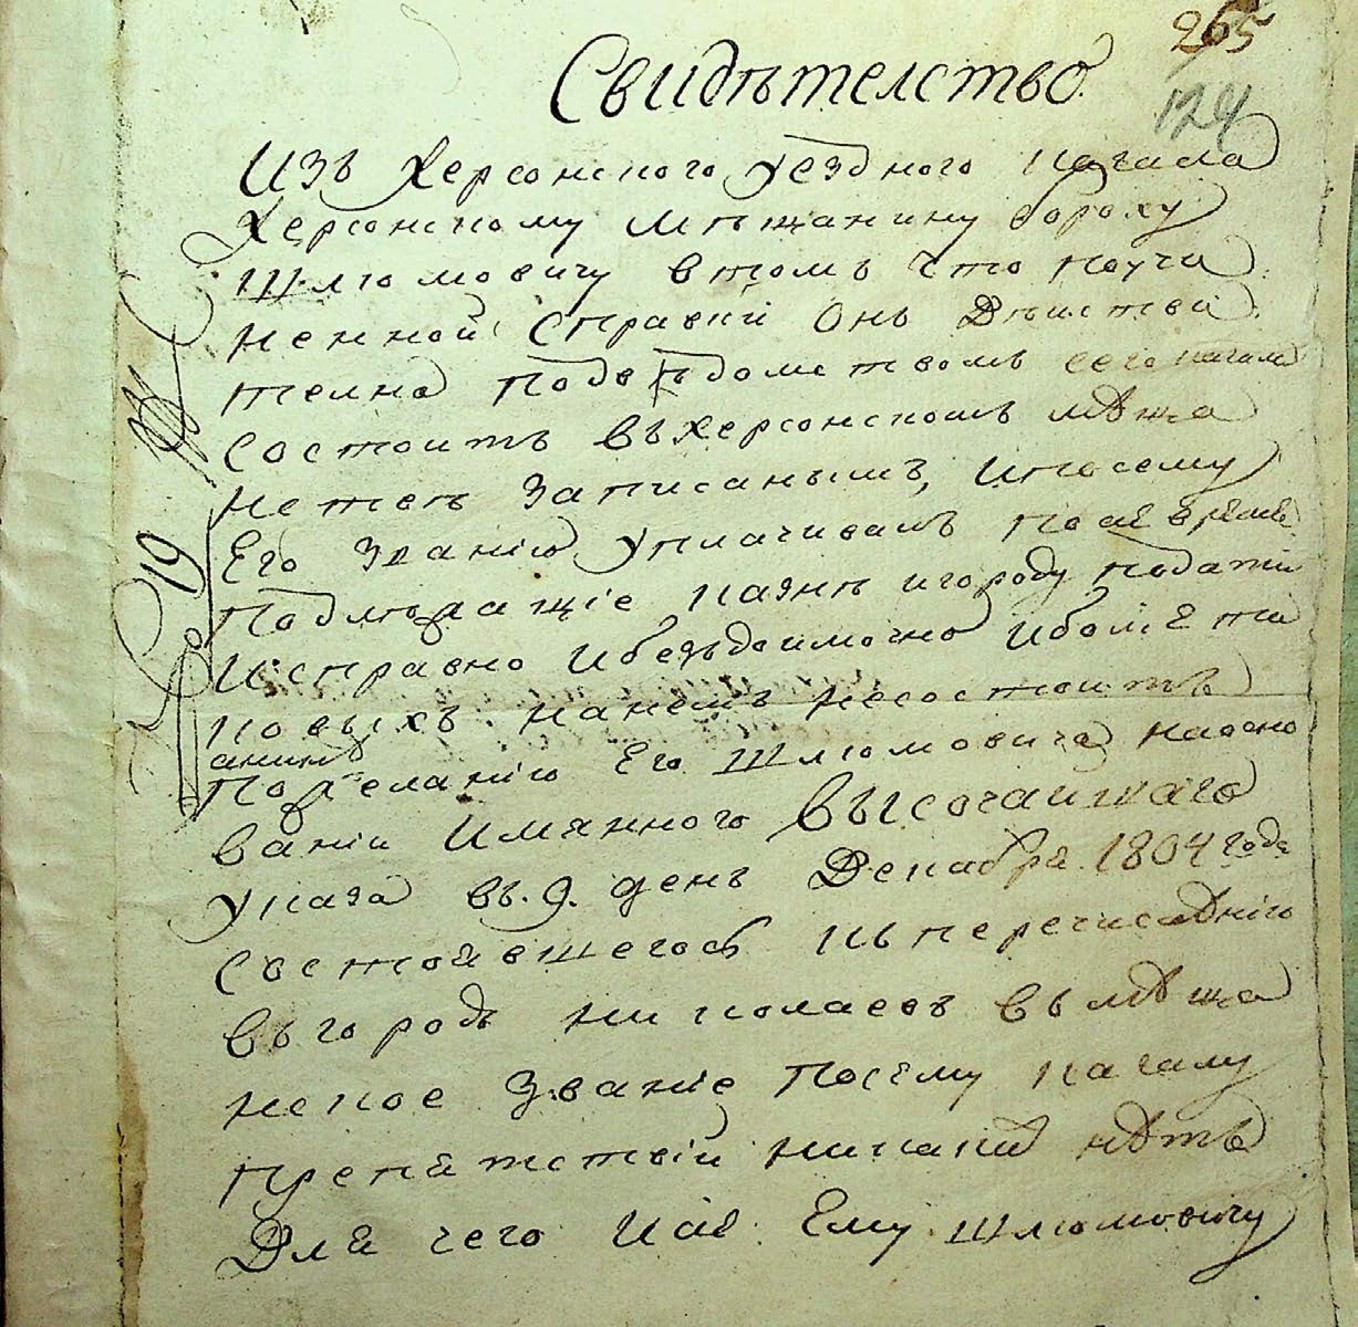 265
124
Свидѣтелство
Изъ Херсонского уездного кагала
Херсонскому мѣщанину Бороху
Шлюмовичу втомъ что поучи
ненной справки онъ Дѣистви
телно подведомствомъ сего кагала
Состоитъ въ Херсонскомъ мѣща
нствѣ записанымъ, ипосему
Его званію уплачивалъ по сіе время
Подлѣжащіе казнѣ игороду подати
Исправно ибездоимочно иболѣе ни
каковыхъ нанемъ несостоитъ
По желанію Его Шлюмовича наосно
ваніи Имянного Высочаишаго
указа въ 9. день Декабря 1804 года
Состоявшегося къперечислѣнію
въгородъ Николаевъ въ мѣща
нское званіе посему кагалу
препятствіи никаких нѣтъ
Для чего и Ему Шлюмовичу
19